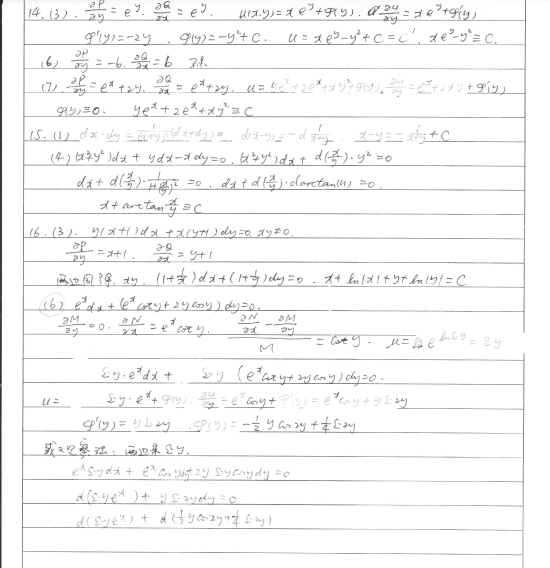 14. (3). ∂P/∂y = e^y. ∂Q/∂x = e^y. u(x.y) = x e^y + φ(y). ∂u/∂y = x e^y + φ'(y)
φ'(y) = -2y. φ(y) = -y² + C. u = x e^y - y² + C = C'. x e^y - y² ≡ C.
(6) ∂P/∂y = -b. ∂Q/∂x = b
(7). ∂P/∂y = e^x + 2y. ∂Q/∂x = e^x + 2y. u = y e^x + 2e^x + xy² + φ(y). ∂u/∂y = e^x + 2xy + φ'(y)
φ(y) ≡ 0. y e^x + 2e^x + xy² ≡ C
15. (1) dx - dy = 1/(x+y)² (dx + dy) = d(x-y) = -d 1/(x+y). x-y = -1/(x+y) + C
(4) (x²+y²)dx + ydx - xdy = 0. (x²+y²)dx + d(x/y)·y² = 0
dx + d(x/y)· 1/(1+(x/y)²) = 0. dx + d(x/y)· darctan(u) = 0.
x + arctan x/y ≡ C
16. (3). y(x+1)dx + x(y+1)dy = 0. xy ≠ 0.
∂P/∂y = x+1. ∂Q/∂x = y+1
两边同除 xy. (1+1/x)dx + (1+1/y)dy = 0. x + ln|x| + y + ln|y| = C
(6) e^x dx + (e^x cot y + 2y cos y)dy = 0.
∂M/∂y = 0. ∂N/∂x = e^x cot y. (∂N/∂x - ∂M/∂y)/M = cot y. u = e^{ln Siny} = Siny
Siny·e^x dx + Siny (e^x cot y + 2y cos y)dy = 0.
u = Siny·e^x + φ(y) ∂u/∂y = e^x cos y + φ'(y) = e^x cos y + y Sin2y
φ'(y) = y Sin2y φ(y) = -1/2 y cos2y + 1/4 Sin2y
或 观察法: 两边乘 Siny.
e^x Siny dx + e^x cos y dy + 2y Siny cosy dy = 0
d(Siny e^x) + y Sin2y dy = 0
d(Siny e^x) + d(-1/2 y cos2y + 1/4 Sin2y)